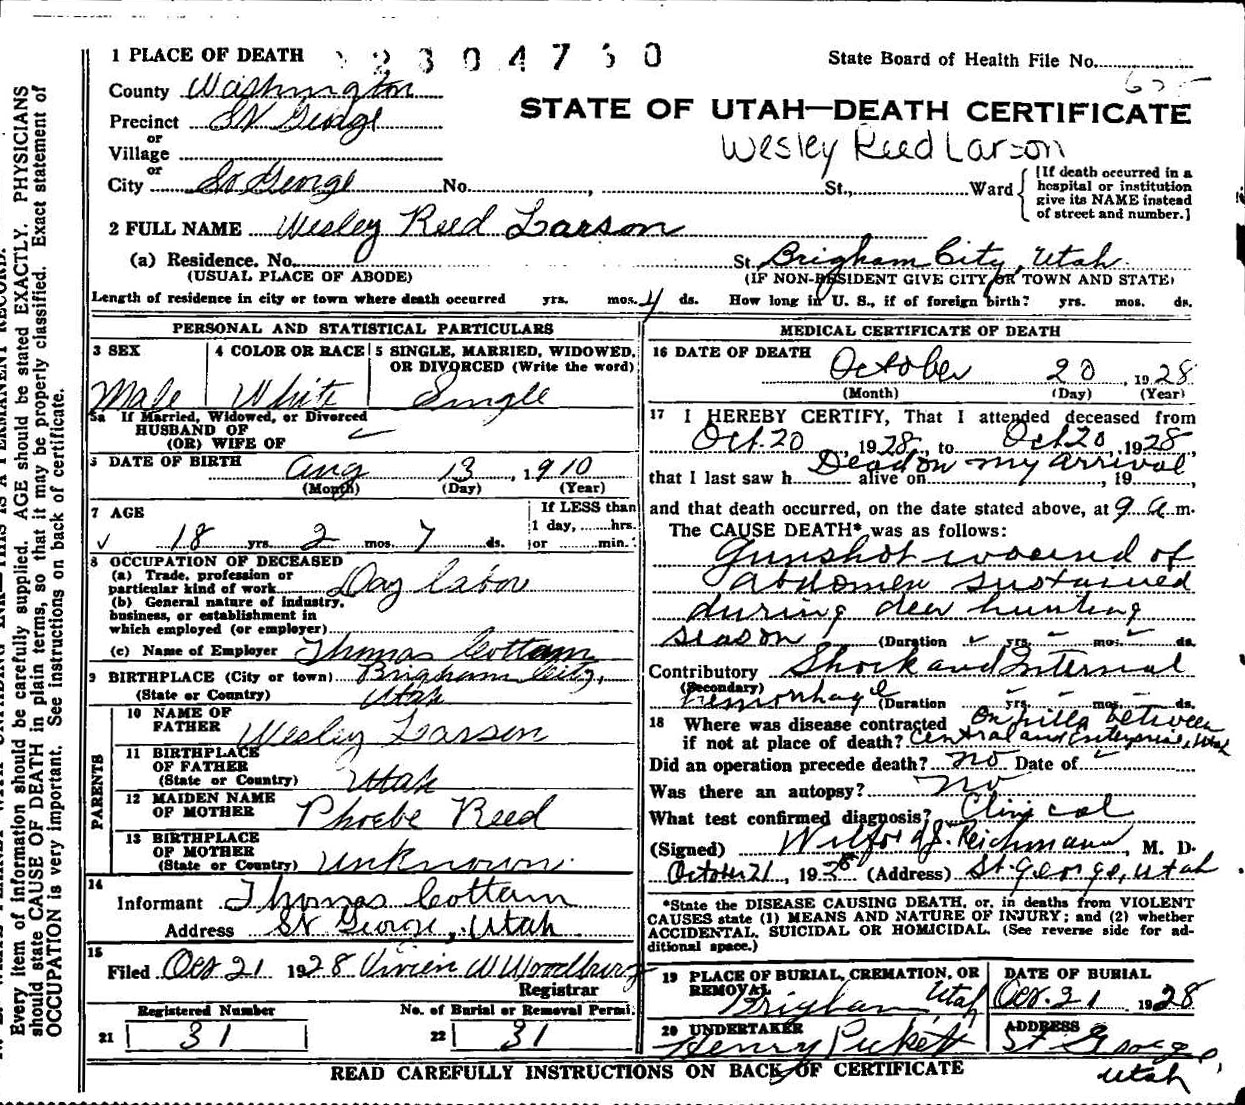 1 PLACE OF DEATH
State Board of Health File No.
County Washington
STATE OF UTAH—DEATH CERTIFICATE
Precinct St George
Wesley Reed Larson
or
Village
or
City St George No. , St., Ward
[If death occurred in a
hospital or institution
give its NAME instead
of street and number.]
2 FULL NAME Wesley Reed Larson
(a) Residence. No. St. Brigham City, Utah.
(USUAL PLACE OF ABODE) (IF NON-RESIDENT GIVE CITY OR TOWN AND STATE)
Length of residence in city or town where death occurred yrs. mos. 4 ds. How long in U. S., if of foreign birth? yrs. mos. ds.
PERSONAL AND STATISTICAL PARTICULARS
3 SEX
Male
4 COLOR OR RACE
White
5 SINGLE, MARRIED, WIDOWED,
OR DIVORCED (Write the word)
Single
5a If Married, Widowed, or Divorced
HUSBAND OF
(OR) WIFE OF
DATE OF BIRTH Aug 13, 1910
(Month) (Day) (Year)
7 AGE
18 yrs. 2 mos. 7 ds.
If LESS than
1 day, hrs.
or min.
8 OCCUPATION OF DECEASED
(a) Trade, profession or
particular kind of work Day labor
(b) General nature of industry,
business, or establishment in
which employed (or employer)
(c) Name of Employer Thomas Cottam
9 BIRTHPLACE (City or town) Brigham City,
(State or Country) Utah
PARENTS
10 NAME OF
FATHER Wesley Larson
11 BIRTHPLACE
OF FATHER
(State or Country) Utah
12 MAIDEN NAME
OF MOTHER Phoebe Reed
13 BIRTHPLACE
OF MOTHER
(State or Country) Unknown.
14
Informant Thomas Cottam
Address St George, Utah
15
Filed Oct 21 1928 Vivien W Woodbury
Registrar
Registered Number
21 31
No. of Burial or Removal Permit
22 31
MEDICAL CERTIFICATE OF DEATH
16 DATE OF DEATH October 20, 1928
(Month) (Day) (Year)
17 I HEREBY CERTIFY, That I attended deceased from
Oct. 20, 1928, to Oct 20, 1928,
Dead on my arrival
that I last saw h alive on , 19 ,
and that death occurred, on the date stated above, at 9 a m.
The CAUSE DEATH* was as follows:
Gunshot wound of
abdomen sustained
during deer hunting
season (Duration yrs. mos. ds.
Contributory Shock and Internal
(Secondary) hemorrhage (Duration yrs. mos. ds.
18 Where was disease contracted On hills between
if not at place of death? Central and Enterprise, Utah
Did an operation precede death? no Date of
Was there an autopsy? no
What test confirmed diagnosis? Clinical
(Signed) Wilford J. Reichmann, M. D.
October 21, 1928 (Address) St. George, Utah
*State the DISEASE CAUSING DEATH, or, in deaths from VIOLENT
CAUSES state (1) MEANS AND NATURE OF INJURY; and (2) whether
ACCIDENTAL, SUICIDAL OR HOMICIDAL. (See reverse side for ad-
ditional space.)
19 PLACE OF BURIAL, CREMATION, OR
REMOVAL
Brigham, Utah
DATE OF BURIAL
Oct. 21 1928
20 UNDERTAKER
Henry Pickett
ADDRESS
St George,
Utah
READ CAREFULLY INSTRUCTIONS ON BACK OF CERTIFICATE
Every item of information should be carefully supplied. AGE should be stated EXACTLY. PHYSICIANS
should state CAUSE OF DEATH in plain terms, so that it may be properly classified. Exact statement of
OCCUPATION is very important. See instructions on back of certificate.